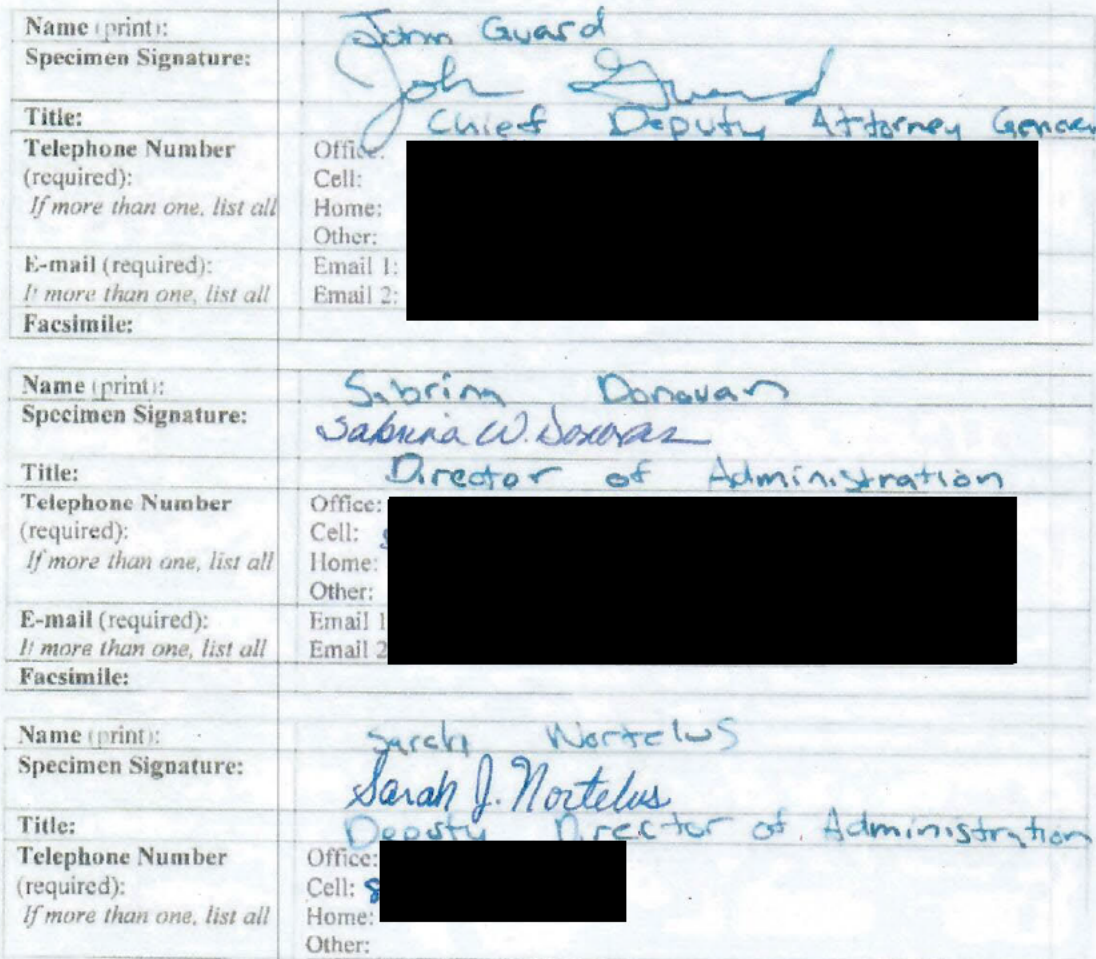 Name (print): John Guard
Specimen Signature: John Guard
Title: Chief Deputy Attorney General
Telephone Number Office:
(required): Cell:
If more than one, list all Home:
Other:
E-mail (required): Email 1:
If more than one, list all Email 2:
Facsimile:
Name (print): Sabrina Donovan
Specimen Signature: Sabrina W. Donovan
Title: Director of Administration
Telephone Number Office:
(required): Cell:
If more than one, list all Home:
Other:
E-mail (required): Email 1
If more than one, list all Email 2
Facsimile:
Name (print): Sarah Nortelus
Specimen Signature: Sarah J. Nortelus
Title: Deputy Director of Administration
Telephone Number Office:
(required): Cell: 8
If more than one, list all Home:
Other: